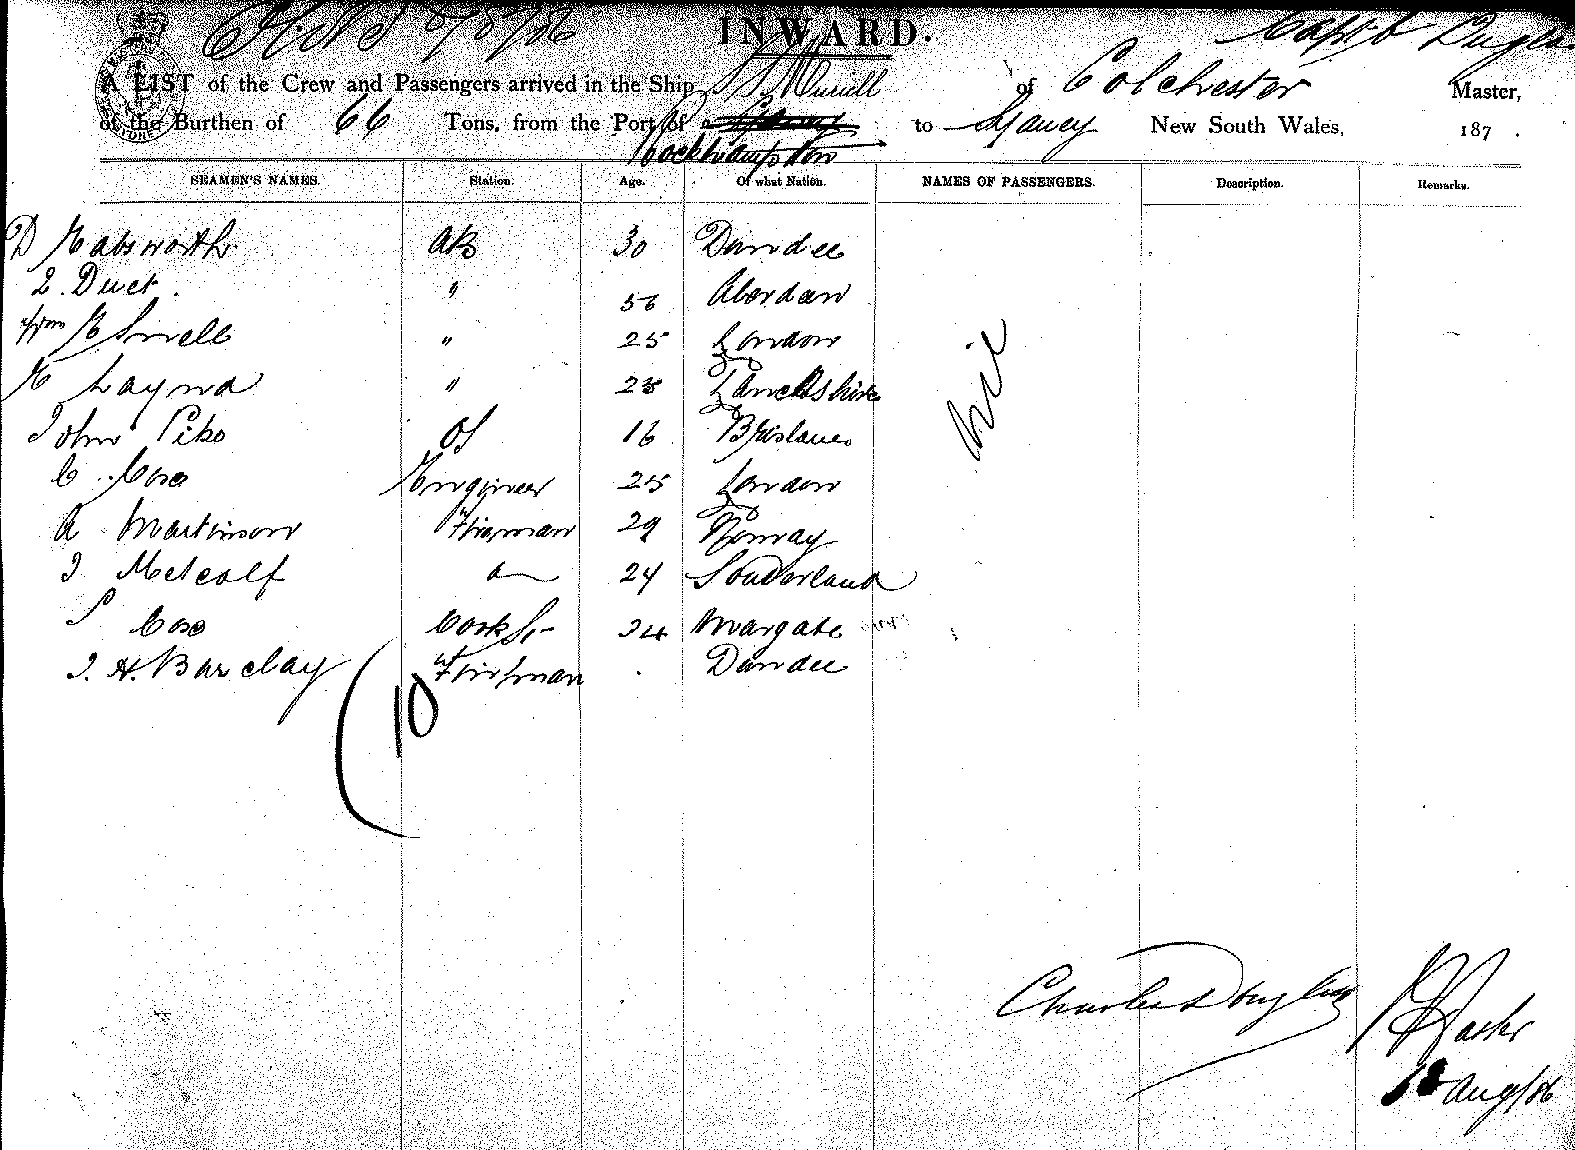 INWARD.
A LIST of the Crew and Passengers arrived in the Ship SS Muriell of Colchester Master,
of the Burthen of 66 Tons, from the Port of to Sydney New South Wales, 187 .
Rockhampton
SEAMEN'S NAMES. Station. Age. Of what Nation. NAMES OF PASSENGERS. Description. Remarks.
D Habsworth AB 30 Dundee
Duct " 56 Aberdeen
Wm " 25 London
H " Lancashire
John Pike OS 16 Brisbane
C Cose Engineer 25 London
A Martinson Fireman 29 Norway
J Metcalf 24 Sunderland
Cose Cook St 24 Margate
J. H. Barclay Dundee
10
nil
Charles Douglas
Aug/86